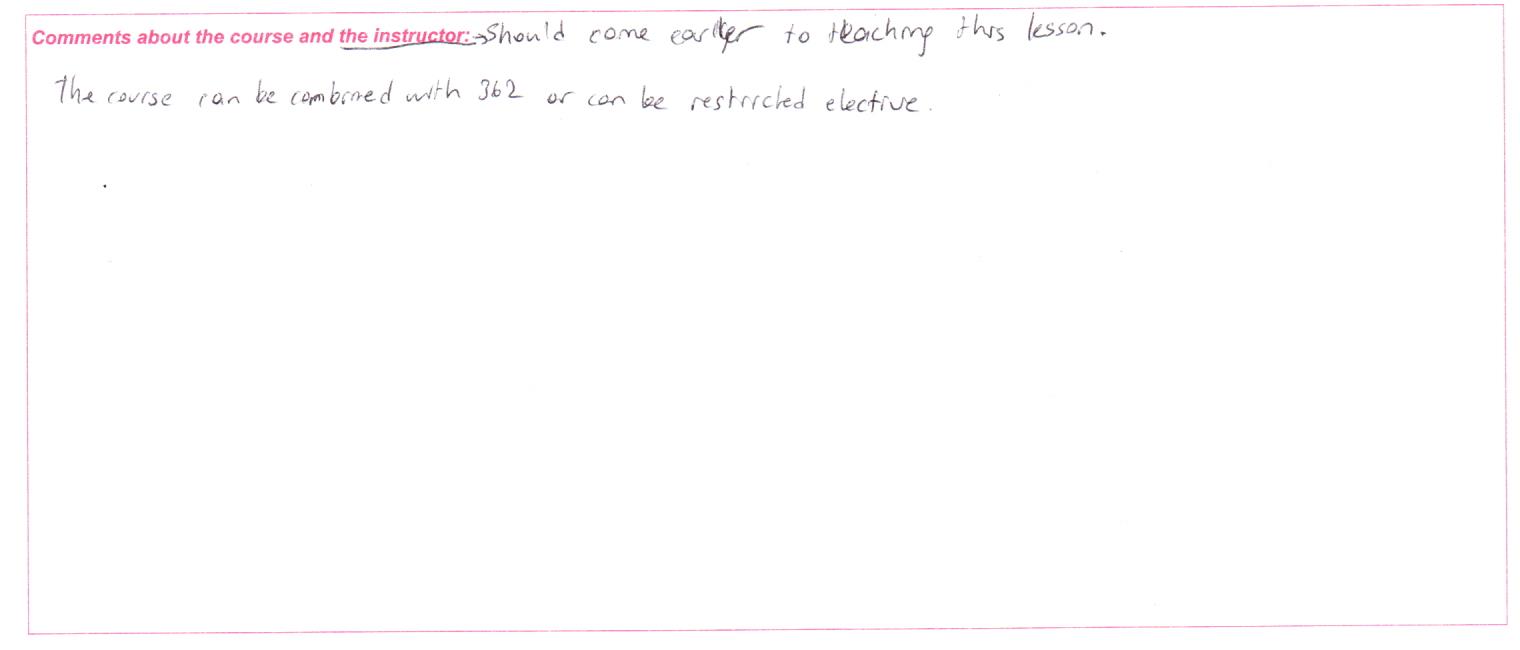 Comments about the course and the instructor: → Should come earlier to teaching this lesson.
The course can be combined with 362 or can be restricted elective.